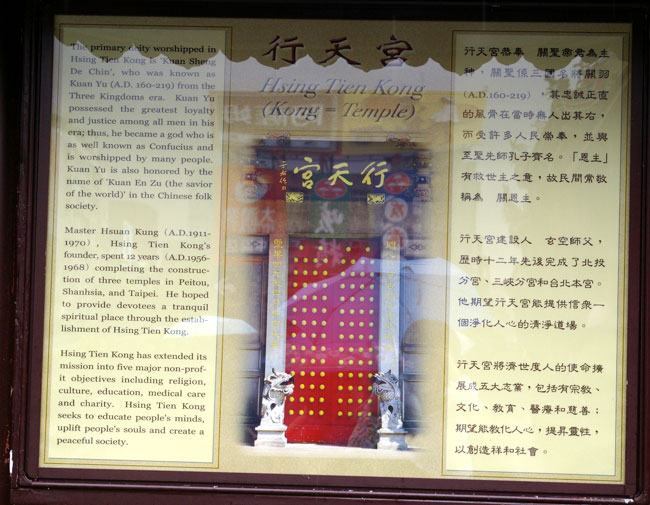 行天宮
Hsing Tien Kong
(Kong = Temple)
The primary deity worshipped in
Hsing Tien Kong is 'Kuan Sheng
De Chin', who was known as
Kuan Yu (A.D. 160-219) from the
Three Kingdoms era. Kuan Yu
possessed the greatest loyalty
and justice among all men in his
era; thus, he became a god who is
as well known as Confucius and
is worshipped by many people.
Kuan Yu is also honored by the
name of 'Kuan En Zu (the savior
of the world)' in the Chinese folk
society.
Master Hsuan Kung (A.D.1911-
1970), Hsing Tien Kong's
founder, spent 12 years (A.D.1956-
1968) completing the construc-
tion of three temples in Peitou,
Shanhsia, and Taipei. He hoped
to provide devotees a tranquil
spiritual place through the estab-
lishment of Hsing Tien Kong.
Hsing Tien Kong has extended its
mission into five major non-prof-
it objectives including religion,
culture, education, medical care
and charity. Hsing Tien Kong
seeks to educate people's minds,
uplift people's souls and create a
peaceful society.
宮天行
行天宮恭奉 關聖帝君為主
神，關聖係三國名將關羽
(A.D.160-219)，其忠誠正直
的風骨在當時無人出其右，
而受許多人民崇奉，並與
至聖先師孔子齊名。「恩主」
有救世主之意，故民間常敬
稱為 關恩主。
行天宮建設人 玄空師父，
歷時十二年先後完成了北投
分宮、三峽分宮和台北本宮。
他期望行天宮能提供信衆一
個淨化人心的清淨道場。
行天宮將濟世度人的使命擴
展成五大志業，包括有宗教、
文化、教育、醫療和慈善；
期望能教化人心，提昇靈性，
以創造祥和社會。